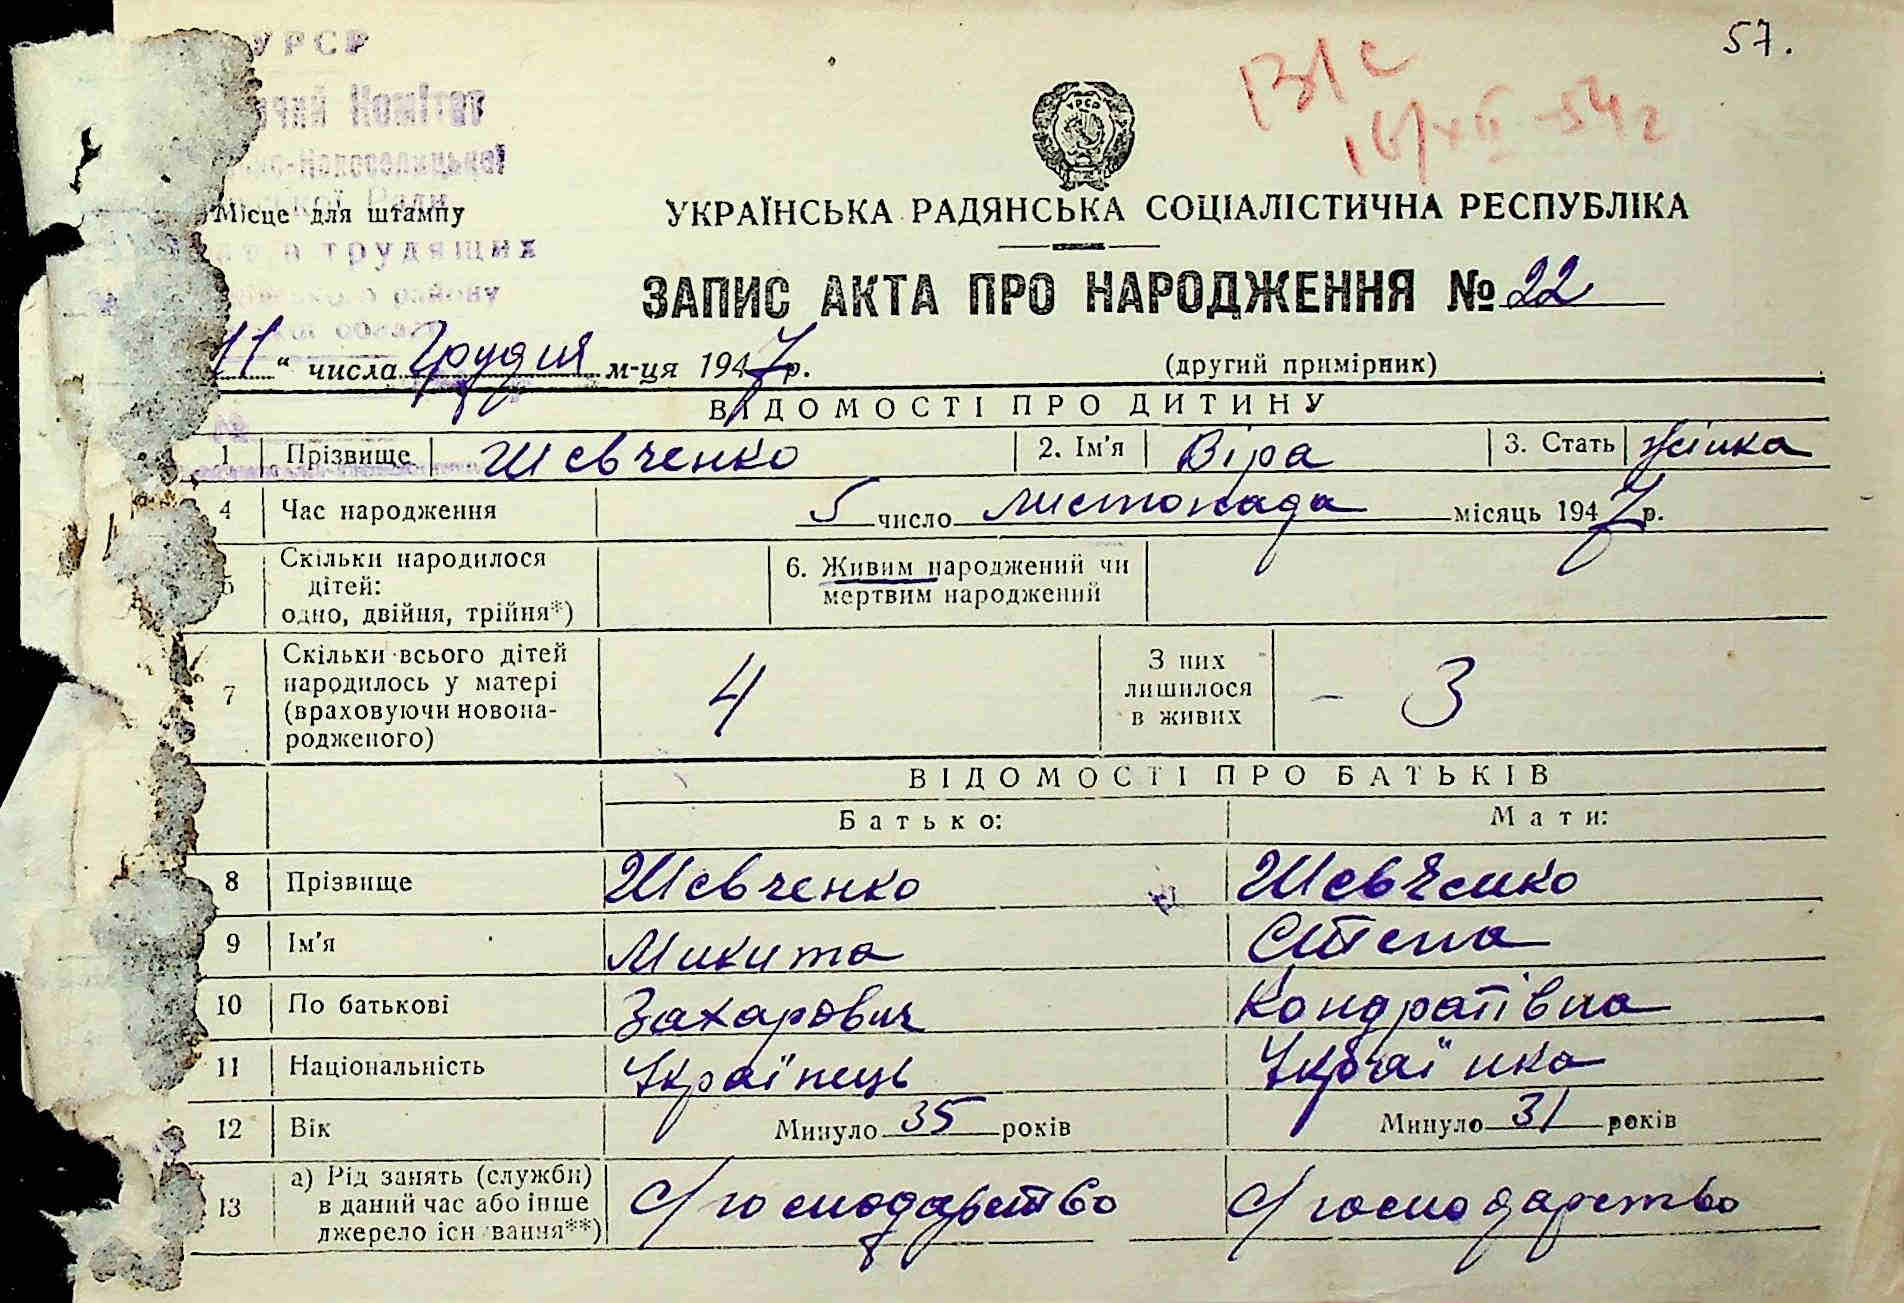 57.
УРСР
Комітет
В/с
16/XII-54 г
УРСР
Ради
Місце для штампу
трудящих
району
УКРАЇНСЬКА РАДЯНСЬКА СОЦІАЛІСТИЧНА РЕСПУБЛІКА
ЗАПИС АКТА ПРО НАРОДЖЕННЯ № 22
11 " числа Грудня м-ця 1947 р. (другий примірник)
ВІДОМОСТІ ПРО ДИТИНУ
1 Прізвище Шевченко 2. Ім'я Віра 3. Стать жінка
4 Час народження 5 число листопада місяць 1947 р.
5 Скільки народилося
дітей:
одно, двійня, трійня*)
6. Живим народжений чи
мертвим народжений
7 Скільки всього дітей
народилось у матері
(враховуючи новона-
родженого)
4
З них
лишилося
в живих
- 3
ВІДОМОСТІ ПРО БАТЬКІВ
Батько: Мати:
8 Прізвище Шевченко Шевченко
9 Ім'я Микита Степа
10 По батькові Захарович Кондратівна
11 Національність Українець Українка
12 Вік Минуло 35 років Минуло 31 років
13 а) Рід занять (служби)
в даний час або інше
джерело існ вання**)
С/господарство С/господарство